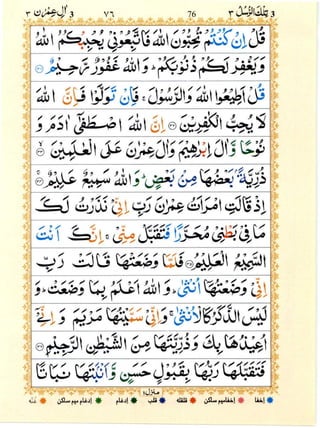 تِلْكَ الرُّسُلُ ٣ 76 ٧٦ اٰلِ عِمْرٰن ٣
قُلْ اِنْ كُنْتُمْ تُحِبُّوْنَ اللّٰهَ فَاتَّبِعُوْنِیْ یُحْبِبْكُمُ اللّٰهُ
وَیَغْفِرْ لَكُمْ ذُنُوْبَكُمْ ؕ وَاللّٰهُ غَفُوْرٌ رَّحِیْمٌ ﴿۳۱﴾
قُلْ اَطِیْعُوا اللّٰهَ وَالرَّسُوْلَ ۚ فَاِنْ تَوَلَّوْا فَاِنَّ اللّٰهَ
لَا یُحِبُّ الْكٰفِرِیْنَ ﴿۳۲﴾ اِنَّ اللّٰهَ اصْطَفٰۤی اٰدَمَ وَ
نُوْحًا وَّاٰلَ اِبْرٰهِیْمَ وَاٰلَ عِمْرٰنَ عَلَی الْعٰلَمِیْنَ ﴿۳۳﴾
ذُرِّیَّةًۢ بَعْضُهَا مِنْۢ بَعْضٍ ؕ وَاللّٰهُ سَمِیْعٌ عَلِیْمٌ ﴿۳۴﴾
اِذْ قَالَتِ امْرَاَتُ عِمْرٰنَ رَبِّ اِنِّیْ نَذَرْتُ لَكَ
مَا فِیْ بَطْنِیْ مُحَرَّرًا فَتَقَبَّلْ مِنِّیْ ۚ اِنَّكَ اَنْتَ
السَّمِیْعُ الْعَلِیْمُ ﴿۳۵﴾ فَلَمَّا وَضَعَتْهَا قَالَتْ رَبِّ
اِنِّیْ وَضَعْتُهَاۤ اُنْثٰی ؕ وَاللّٰهُ اَعْلَمُ بِمَا وَضَعَتْ ؕ وَ
لَیْسَ الذَّكَرُ كَالْاُنْثٰی ۚ وَاِنِّیْ سَمَّیْتُهَا مَرْیَمَ وَ اِنِّیْۤ
اُعِیْذُهَا بِكَ وَذُرِّیَّتَهَا مِنَ الشَّیْطٰنِ الرَّجِیْمِ ﴿۳۶﴾
فَتَقَبَّلَهَا رَبُّهَا بِقَبُوْلٍ حَسَنٍ وَّاَنْۢبَتَهَا نَبَاتًا
منزل ١
اخفا اخفامیم ساکن قلقلہ قلب ادغام ادغام میم ساکن غنہ